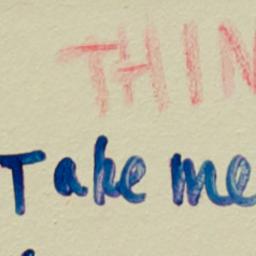 THIN
Take me